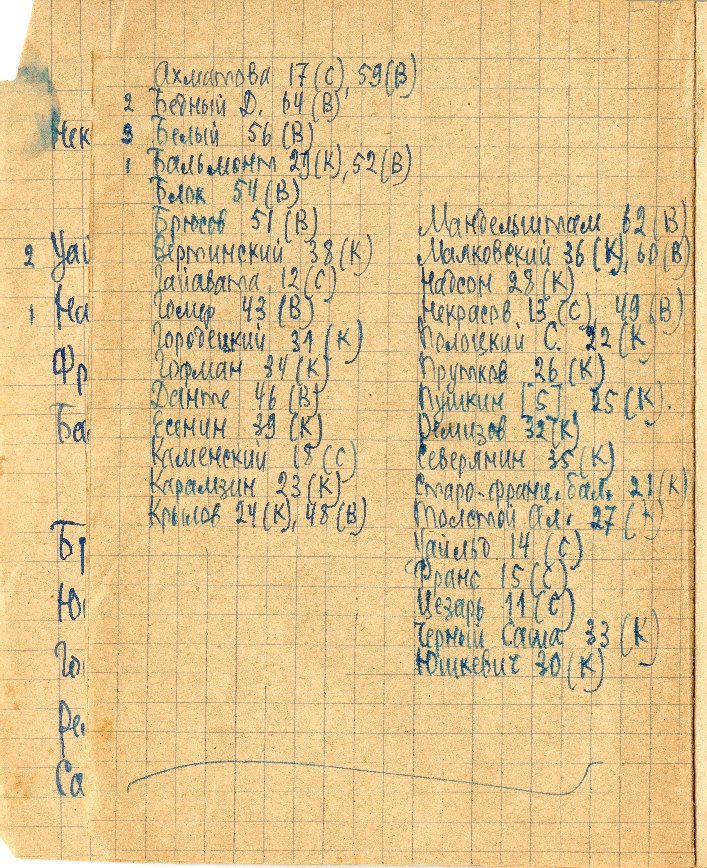 Ахматова 17(С), 59(В)
2 Бедный Д. 64(В)
3 Белый 56(В)
1 Бальмонт 29(К), 52(В)
Блок 54(В)
Брюсов 51(В)
Вертинский 38(К)
Гайавата 12(С)
Гомер 43(В)
Городецкий 31(К)
Гофман 34(К)
Данте 46(В)
Есенин 39(К)
Каменский 18(С)
Карамзин 23(К)
Крылов 24(К), 48(В)
Мандельштам 62(В)
Маяковский 36(К), 60(В)
Надсон 28(К)
Некрасов 13(С), 49(В)
Полоцкий С. 22(К
Прутков 26(К)
Пушкин [5] 25(К).
Ремизов 32(К)
Северянин 35(К)
Старо-франц. бал. 21(К)
Толстой Ал. 27(
Уайльд 14(С)
Франс 15(С)
Цезарь 11(С)
Черный Саша 33(К)
Юшкевич 30(К)
Нек
2 Уай
1 На
Фр
Ба
Бр
Ю
Го
Ре
Са